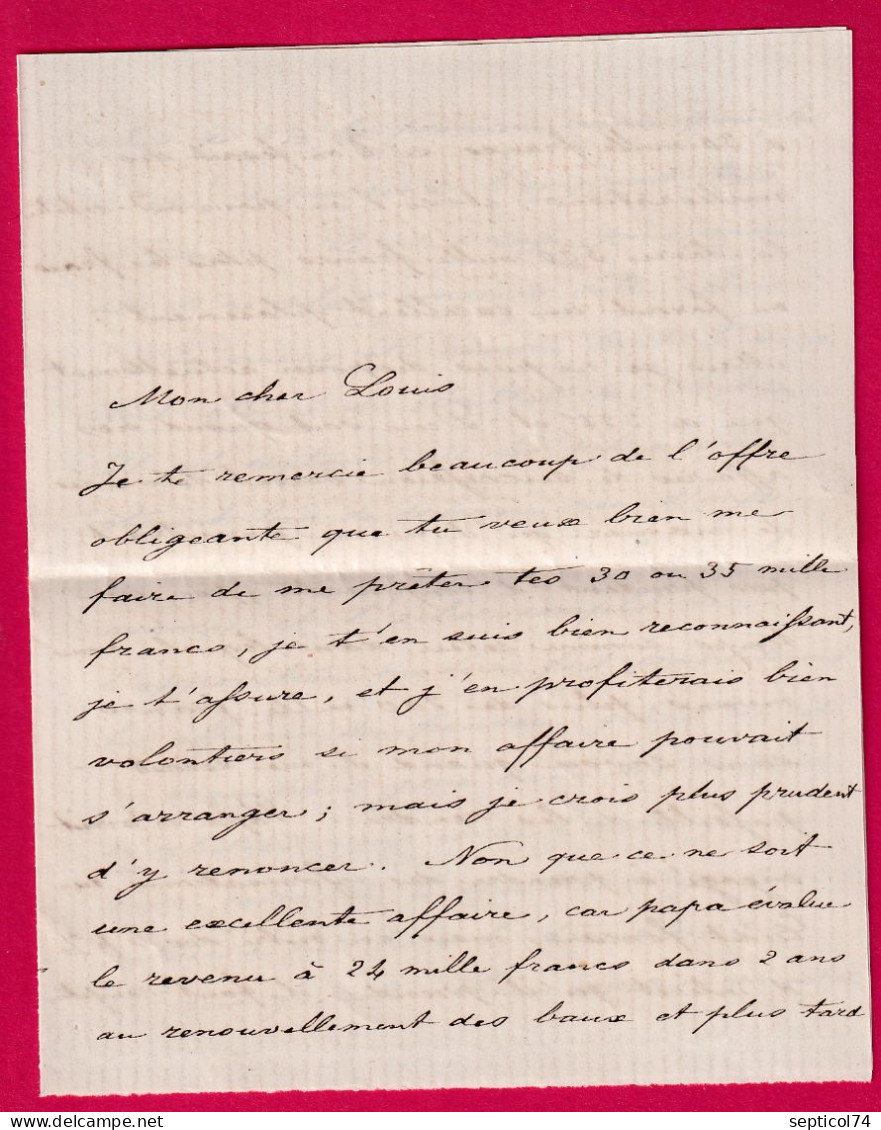 Mon cher Louis
Je te remercie beaucoup de l'offre
obligeante que tu veux bien me
faire de me prêter tes 30 ou 35 mille
francs, je t'en suis bien reconnaissant,
je t'assure, et j'en profiterais bien
volontiers si mon affaire pouvait
s'arranger ; mais je crois plus prudent
d'y renoncer. Non que ce ne soit
une excellente affaire, car papa évalue
le revenu à 24 mille francs dans 2 ans
au renouvellement des baux et plus tard
delcampe.net
septicol74